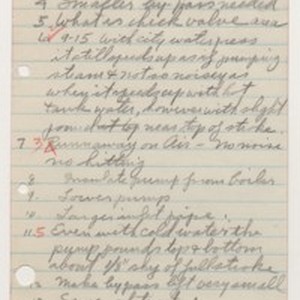 4 Smaller by pass needed
5. What is check valve area
6 9-15 With city water press
it still speeds up as if pumping
steam & not so noisey as
when it speeds up with hot
tank water, however with slight
pound near top of stroke.
7 3 Runnaway on Air - no noise
no hitting
8 Insulate pump from boiler
9. Lower pump
10 Larger inlet pipe.
11. 5 Even with cold water the
pump pounds top & bottom
about 1/8" shy of full stroke
12 Make bypass lift very small
13